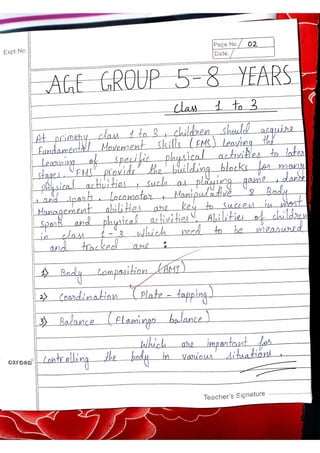 Expt.No.
Page No. 02
Date.
AGE GROUP 5-8 YEARS
Class 1 to 3
At primary class 1 to 3, children should acquire
Fundamental Movement Skills (FMS) leaving the
learning of specific physical activities to later
stages. FMS provide the building blocks for many
physical activities, such as playing game, dance
, and sports. Locomotor, Manipulative & Body
Management abilities are key to success in most
sports and physical activities. Abilities of children
in class 1-3 which need to be measured
and tracked are :
1) Body Composition (BMI)
2) Coordination (Plate - tapping)
3) Balance (Flamingo balance)
Which are important for
controlling the body in various situations.
OXFORD
Teacher's Signature